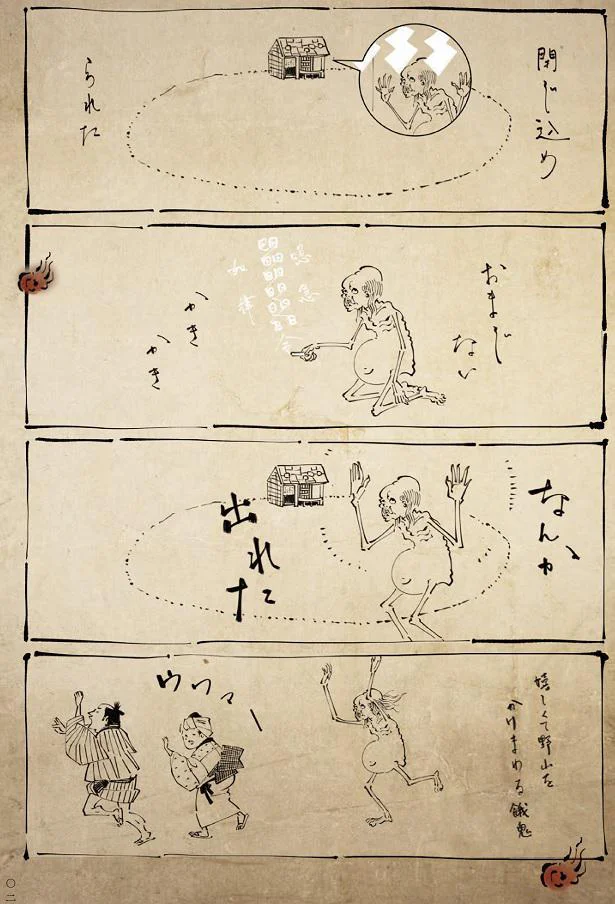 閉じ込め
られた
おまじ
ない
急急
如律
かき
かき
なんか
出れた
嬉しくて野山を
かけまわる餓鬼
ウワァー
〇二